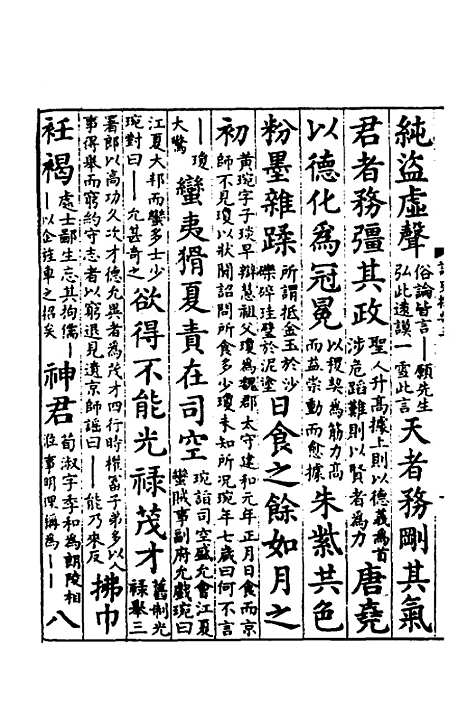 純盜虛聲俗論皆言——願先生弘此遠謨一雪此言天者務剛其氣
君者務彊其政聖人升高據上則以德義為首涉危蹈難則以賢者為力唐堯
以德化為冠冕以稷契為筋力高而益崇動而愈據朱紫共色
粉墨雜蹂所謂抵金玉於沙礫碎珪璧於泥塗日食之餘如月之
初黃琬字子琰早辯慧祖父瓊為魏郡太守建和元年正月日食而京師不見瓊以狀聞詔問所食多少瓊未知所況琬年七歲曰何不言
——瓊大驚蠻夷猾夏責在司空琬詣司空盛允會江夏蠻賊事副府允戲琬曰
江夏大邦而蠻多士少琬對曰——允甚奇之欲得不能光祿茂才舊制光祿舉三
署郎以高功久次才德尤異者為茂才四行時權富子弟多以人事得舉而窮約守志者以窮退見遺京師謠曰——能乃來反拂巾
衽褐處士鄙生忘其拘儒——以企旌車之招矣神君荀淑字季和為朗陵相蒞事明理稱為——八